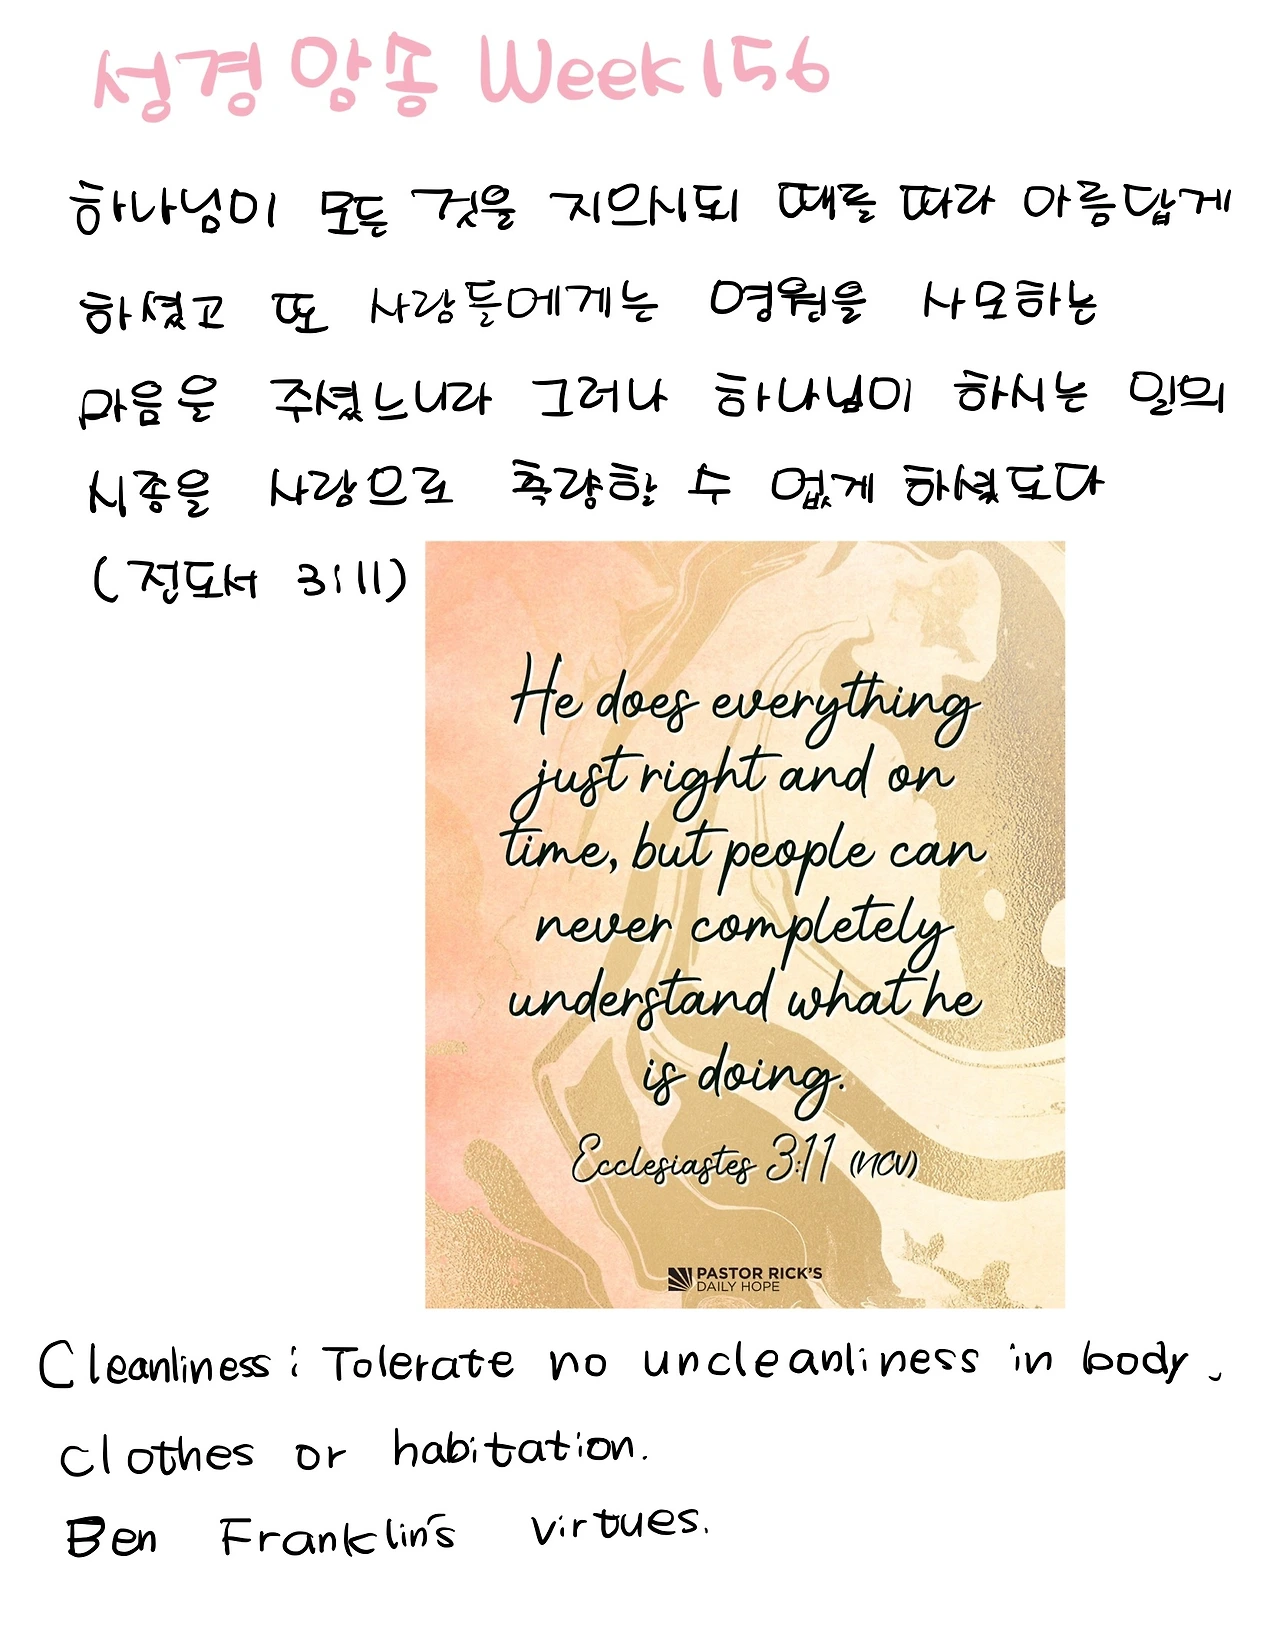 성경암송 Week 156
하나님이 모든 것을 지으시되 때를 따라 아름답게
하셨고 또 사람들에게는 영원을 사모하는
마음을 주셨느니라 그러나 하나님이 하시는 일의
시종을 사람으로 측량할 수 없게 하셨도다
(전도서 3:11)
He does everything
just right and on
time, but people can
never completely
understand what he
is doing.
Ecclesiastes 3:11 (NCV)
PASTOR RICK'S
DAILY HOPE
Cleanliness: Tolerate no uncleanliness in body,
clothes or habitation.
Ben Franklin's virtues.